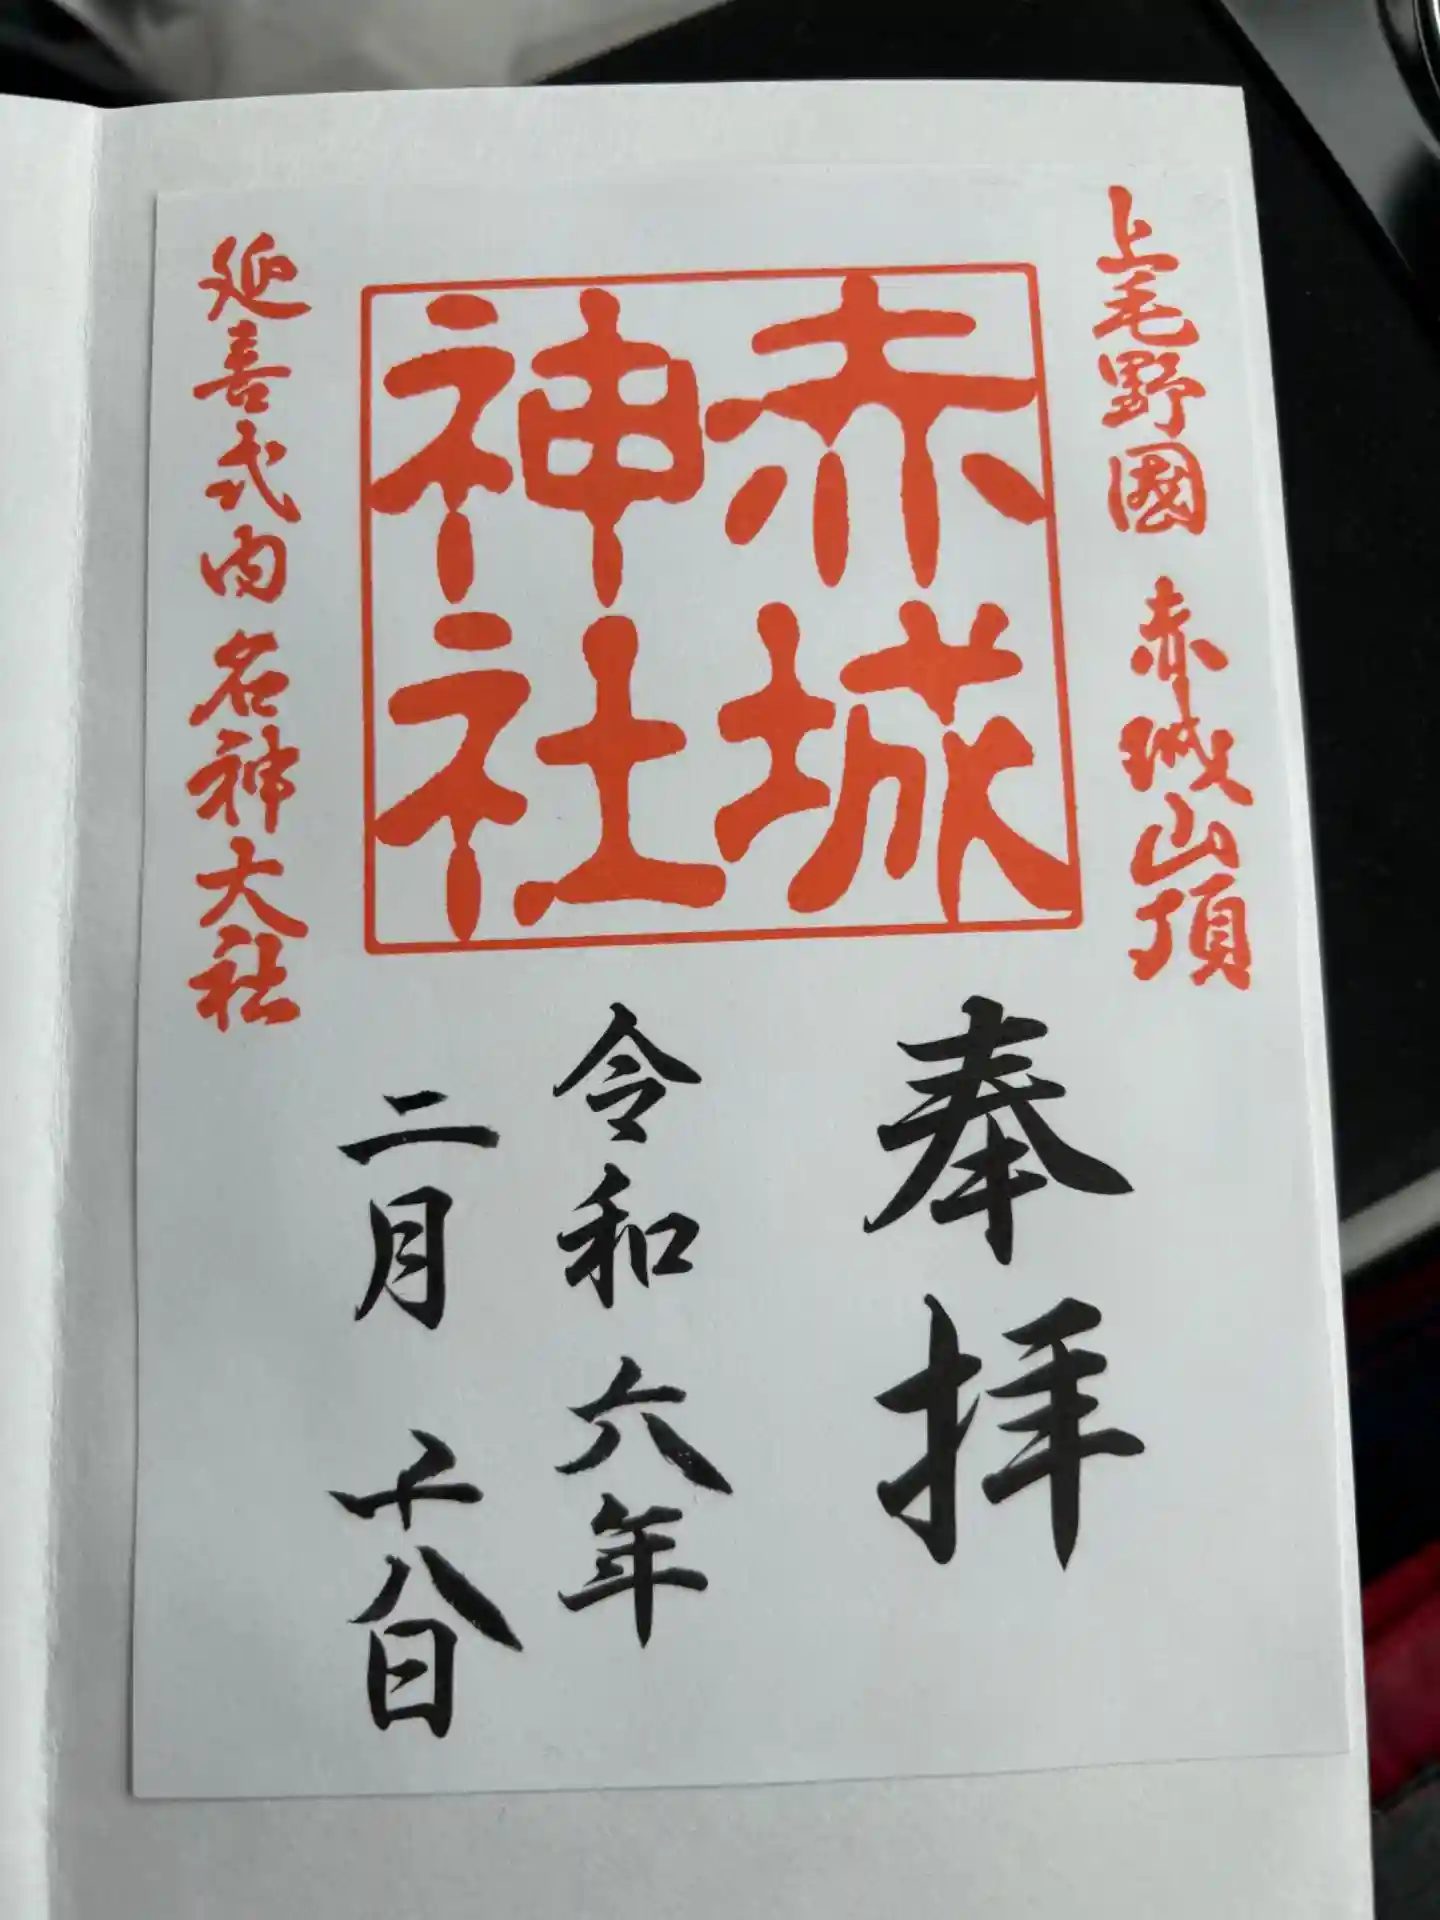 上毛野國 赤城山頂
赤城
神社
延喜式内 名神大社
奉拝
令和六年
二月十八日